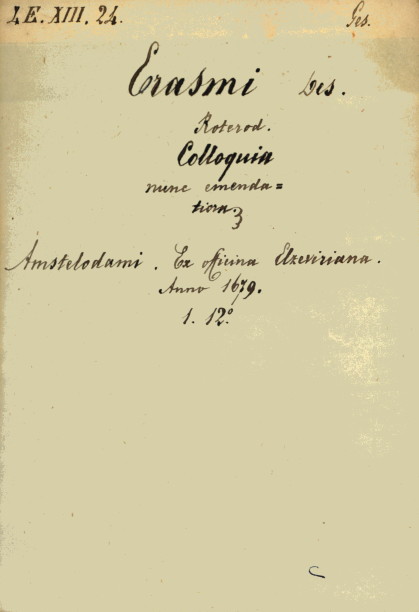 1 E. XIII. 24. Ges.
Erasmi Des.
Roterod.
Colloquia
nunc emenda=
tiora
Amstelodami. Ex officina Elzeviriana.
Anno 1679.
1. 12°